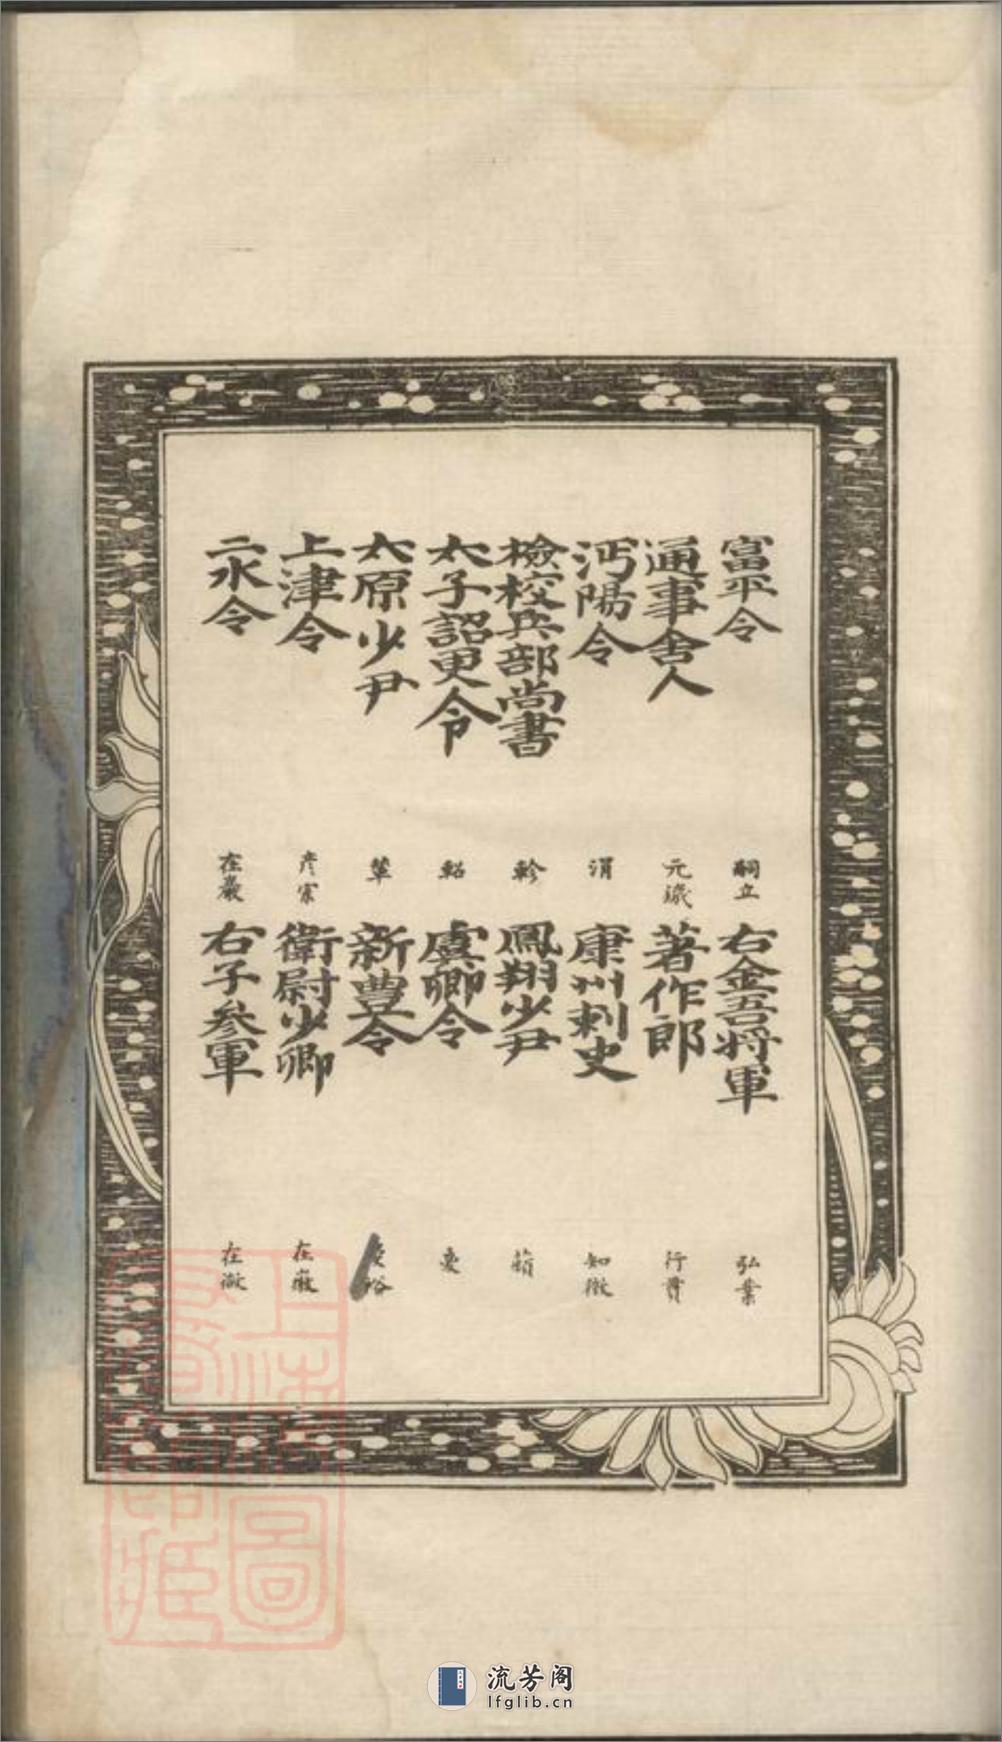 富平令 嗣立 右金吾將軍 弘業
通事舍人 元 著作郎 行賞
沔陽令 涓 康州刺史 知微
檢校兵部尚書 軫 鳳翔少尹
太子詔更令 韜 虞卿令
太原少尹 犖 新豊令
上津令 彦宗 衛尉少卿 在
二水令 在巖 右子參軍 在
上海圖
流芳阁
lfglib.cn